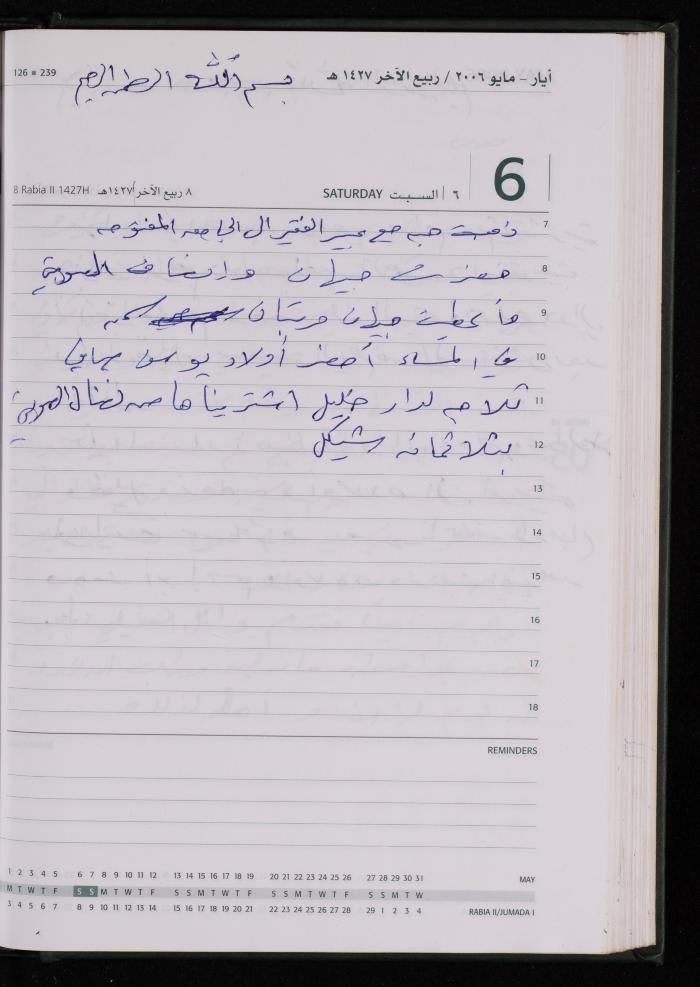 126 = 239
بسم الله الرحمن الرحيم
أيار - مايو ٢٠٠٦ / ربيع الآخر ١٤٢٧ هـ
8 Rabia II 1427H ٨ ربيع الآخر ١٤٢٧هـ SATURDAY ٦ السبت 6
7 ذهبت مع عبير الفقير الى الجامعه المفتوحه
8 حضرت جيهان وانصاف
9 جيهان
10 في المساء أحضر أولاد يوسف
11 ثلاجه لدار خليل اشتريناها من نضال
12 بثلاثمائه شيكل
13
14
15
16
17
18
REMINDERS
1 2 3 4 5 6 7 8 9 10 11 12 13 14 15 16 17 18 19 20 21 22 23 24 25 26 27 28 29 30 31 MAY
M T W T F S S M T W T F S S M T W T F S S M T W T F S S M T W
3 4 5 6 7 8 9 10 11 12 13 14 15 16 17 18 19 20 21 22 23 24 25 26 27 28 29 1 2 3 4 RABIA II/JUMADA I